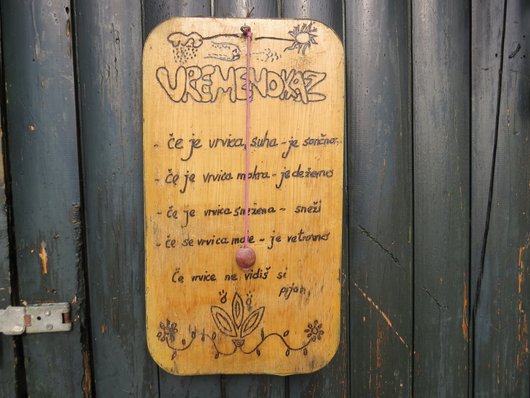 VREMENOKAZ
- če je vrvica suha - je sončno
- če je vrvica mokra - je deževno
- če je vrvica snežena - sneži
- če se vrvica maje - je vetrovno
Če vrvice ne vidiš si
pijan